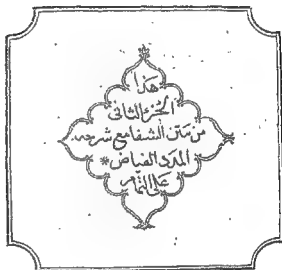 هذا
الجزء الثاني
من متن الشفا مع شرحه
المدد الفياض *
على التمام